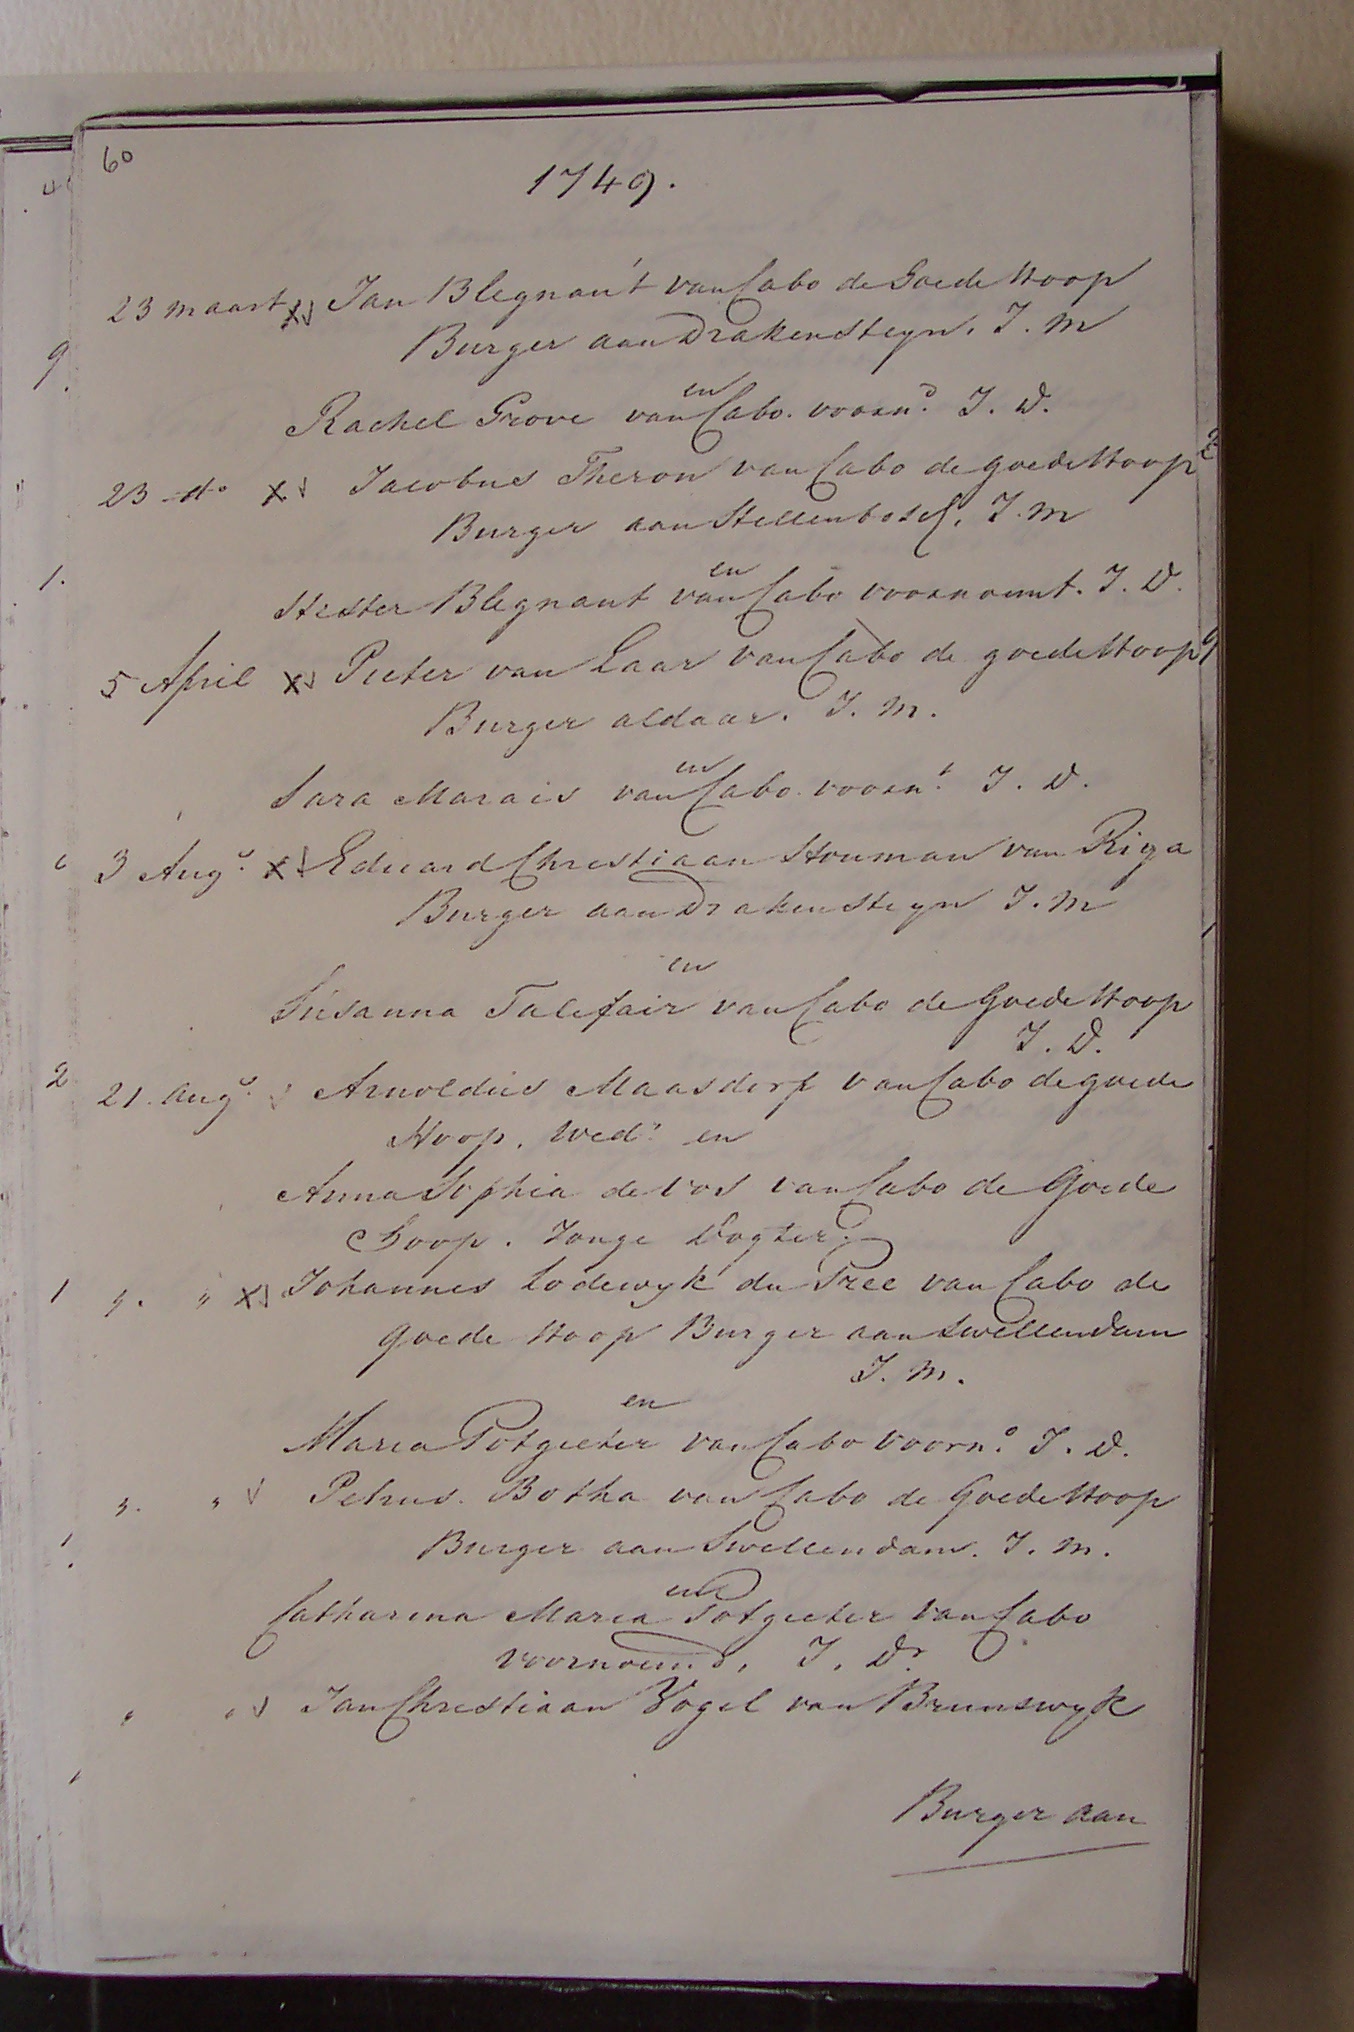 60
1749.
23 maart x Jan Blegnaút van Cabo de Goede Hoop
Burger aan Drakensteyn. J. M
en
Rachel Grove van Cabo. voornd. J. D.
23 do x Jacobus Theron van Cabo de goede Hoop
Burger aan Stellenbosch. J. M
en
Hester Blegnaut van Cabo voornoemt. J. D.
5 April x Pieter van Laar van Cabo de goede Hoop
Burger aldaar. J. M.
en
Sara Marais van Cabo voornt. J. D.
3 Augs. x Eduard Christiaan Houman van Riga
Burger aan Drakensteyn J. M
en
Súsanna Talefair van Cabo de Goede Hoop
J. D.
21. Augs. Arnoldús Maasdorp van Cabo de goede
Hoop. Wedr. en
Anna Sophia de Vos van Cabo de Goede
Hoop. Jonge Dogter.
" " x Johannes Lodewyk du Pree van Cabo de
goede Hoop Burger aan Swellendam
J. M.
en
Maria Potgieter van Cabo voorno. J. D.
" " Petrus. Botha van Cabo de Goede Hoop
Burger aan Swellendam. J. M.
en
Catharina Maria Potgieter van Cabo
voornoemd. J. Dr.
" " Jan Christiaan Vogel van Brunswyk
Burger aan